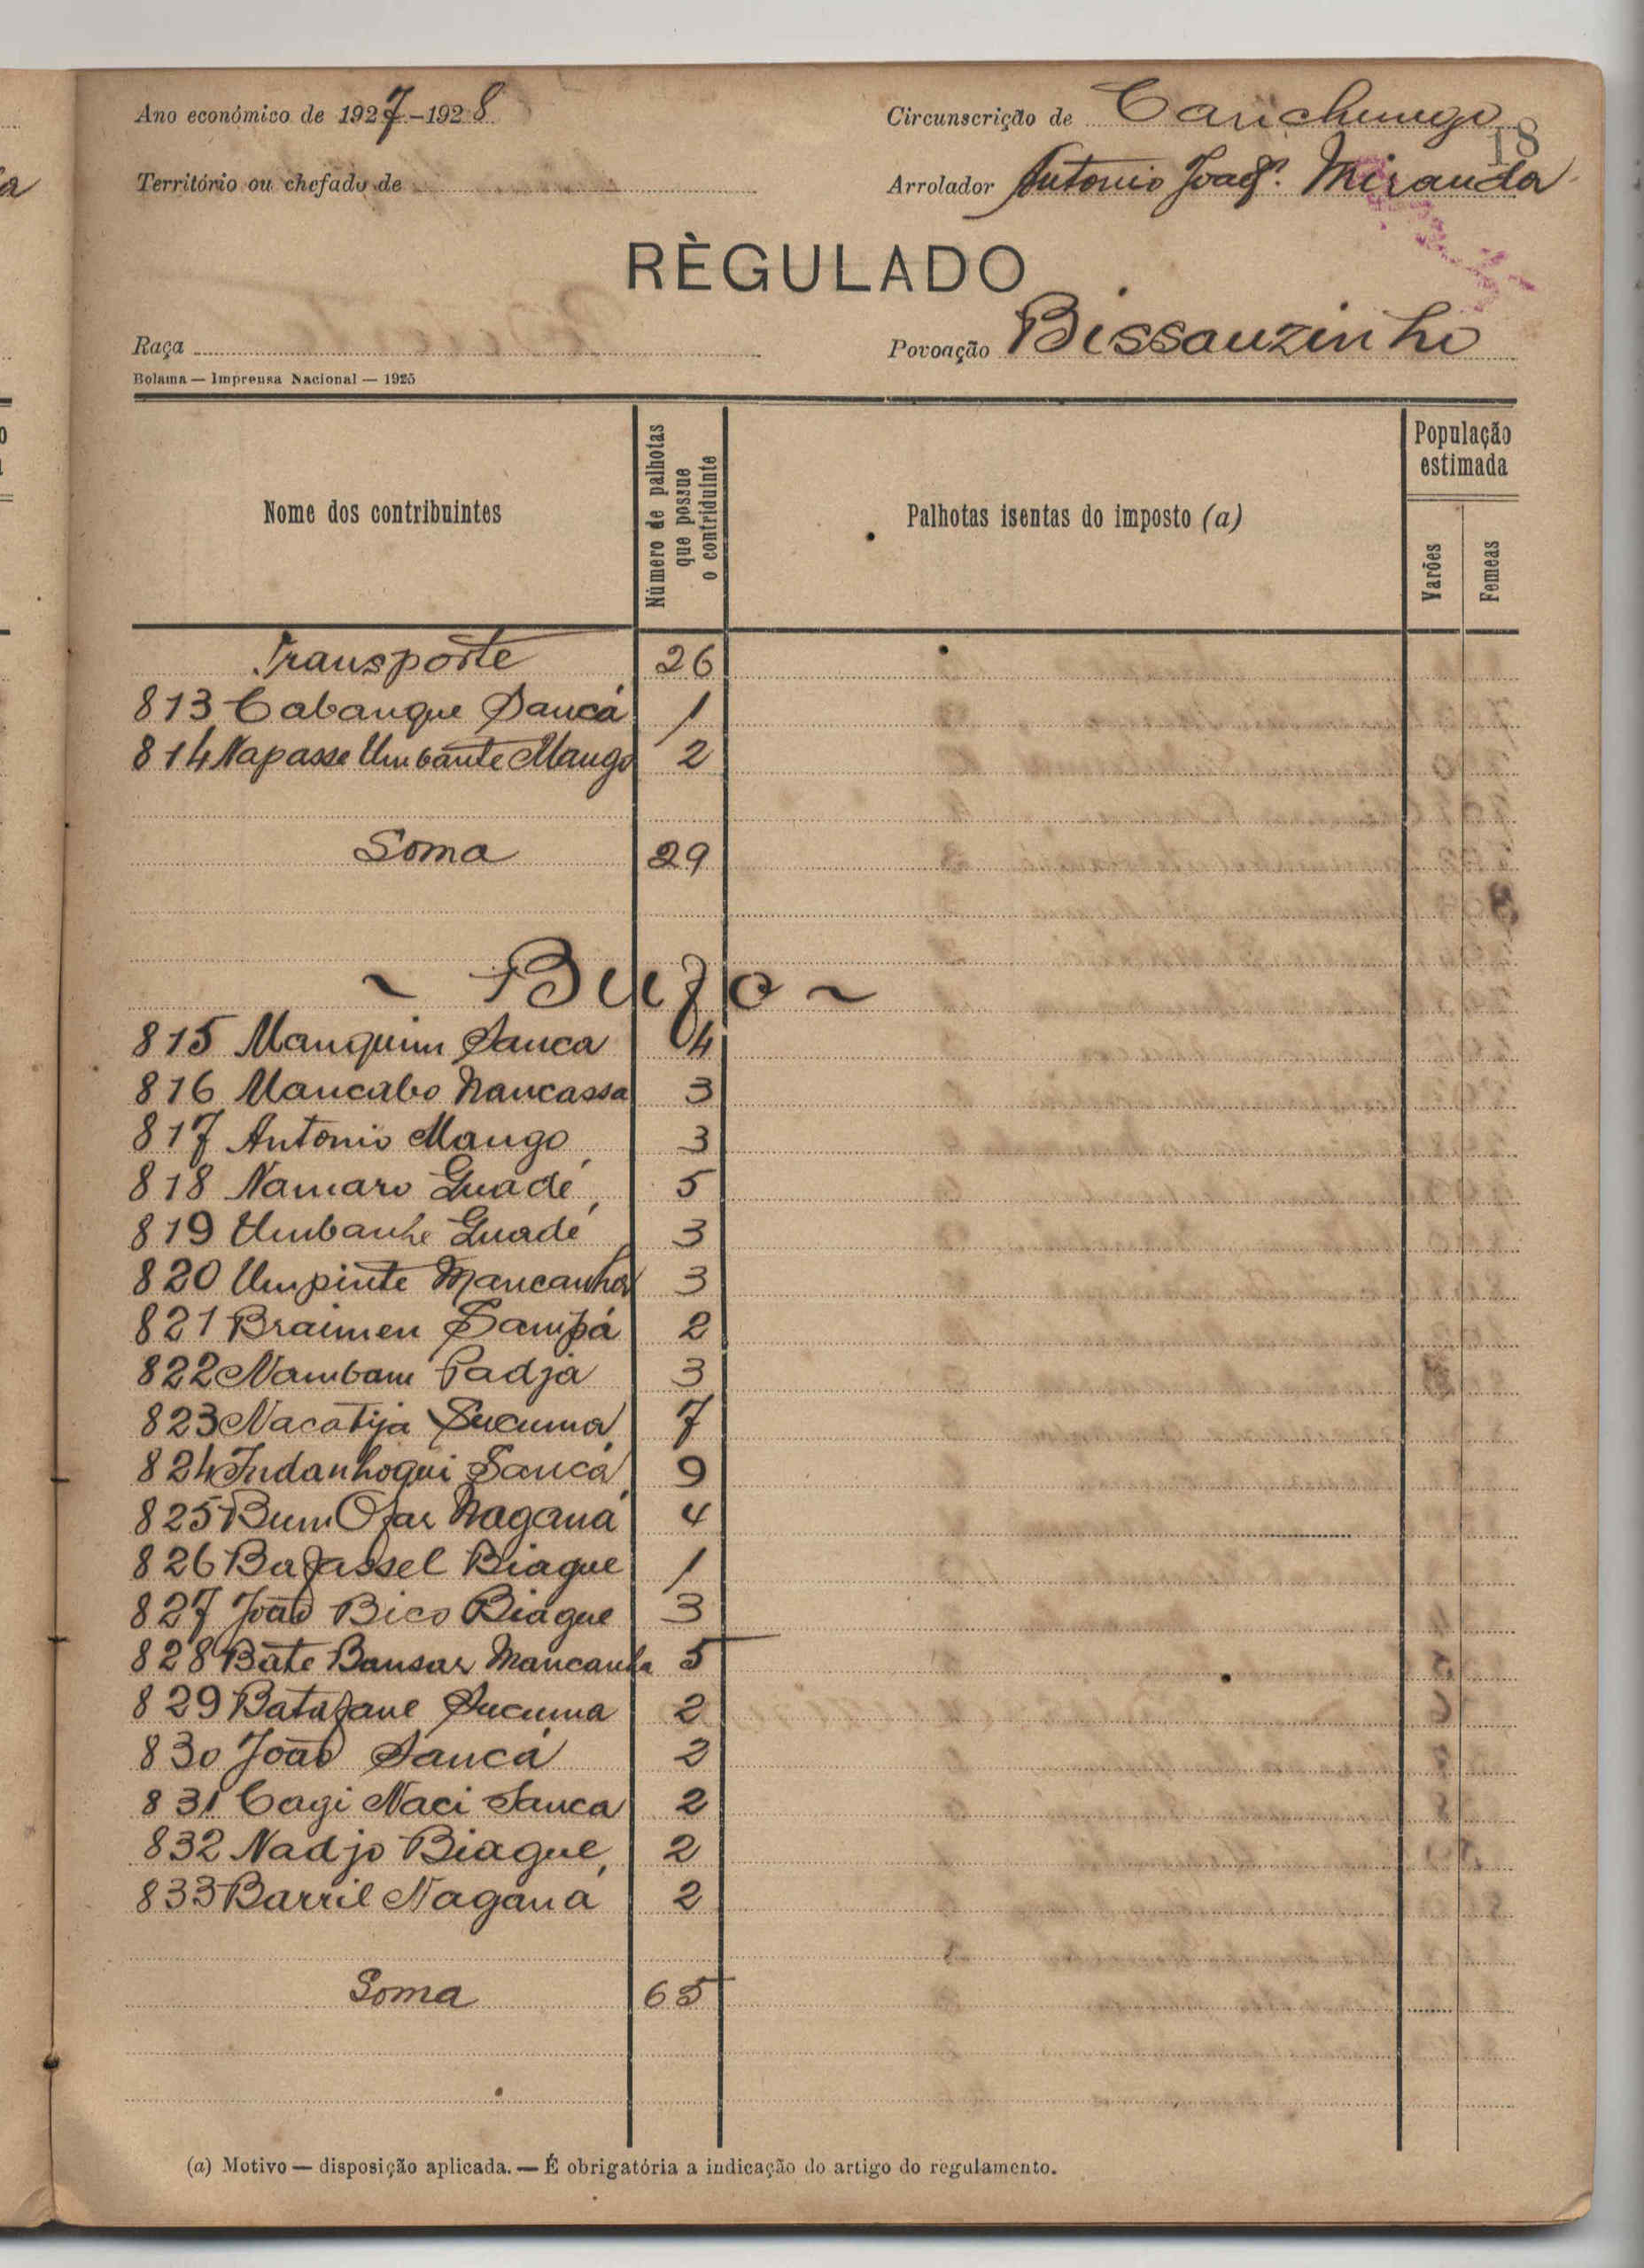 Ano económico de 1927-1928
Circunscrição de Canchungo
18
Território ou chefado de
Arrolador Antonio Joaqm. Miranda
RÈGULADO
Raça
Povoação Bissauzinho
Bolama — Imprensa Nacional — 1925
Nome dos contribuintes
Número de palhotas que possue o contriduinte
Palhotas isentas do imposto (a)
População estimada
Varões
Femeas
Transporte 26
813 Cabanque Sancá 1
814 Napasse Umbante Mango 2
Soma 29
~ Bujo ~
815 Manquim Sanca 4
816 Mancabo Nancassa 3
817 Antonio Mango 3
818 Namaro Guadé 5
819 Umbanhe Guadé 3
820 Umpinte Mancanha 3
821 Braimen Sampá 2
822 Nambam Padja 3
823 Nacatija Sucuma 7
824 Indanhogui Sancá 9
825 Bum Ofar Naganá 4
826 Bafassel Biague 1
827 João Bico Biague 3
828 Bate Bansar Mancanha 5
829 Batafane Sucuma 2
830 João Sancá 2
831 Cagi Naci Sanca 2
832 Nadjo Biague 2
833 Barril Naganá 2
Soma 65
(a) Motivo — disposição aplicada. — É obrigatória a indicação do artigo do regulamento.